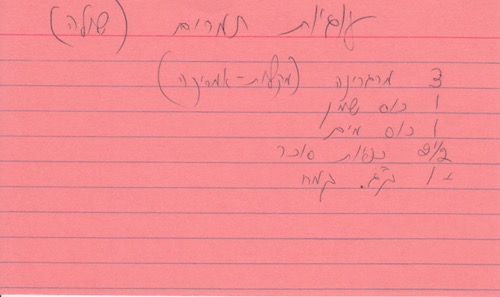 עוגיות תמרים (שולה)
3 מרגרינה (מקלות-אמריקה)
1 כוס שמן
1 כוס מים
2 1/2 כפות סוכר
1 ק"ג. קמח